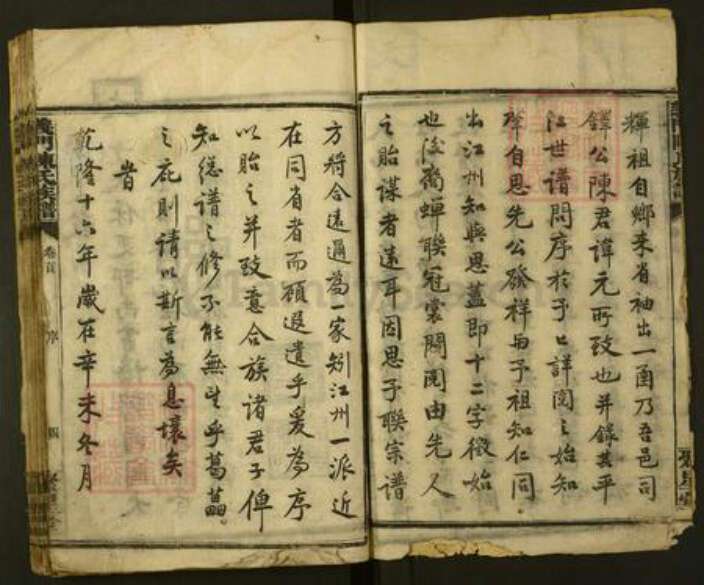 輝祖自鄉來省袖出一函乃吾邑司
鐸公陳君諱元所致也并錄其平
江世譜問序於予予詳閱之始知
聲自思先公發祥與予祖知仁同
出江州知與思蓋即十二字徵始
也後裔蟬聯冠裳閥閱由先人
之貽謀者遠耳因思予聯宗譜
方將合遠邇為一家矧江州一派近
在同省者而顧遐遺乎爰為序
以貽之并致意合族諸君子俾
知總譜之修不能無望乎葛藟
之庇則請以斯言為息壤矣
旹
乾隆十六年歲在辛未冬月
義門陳氏族譜
卷首
序
四
聚星堂